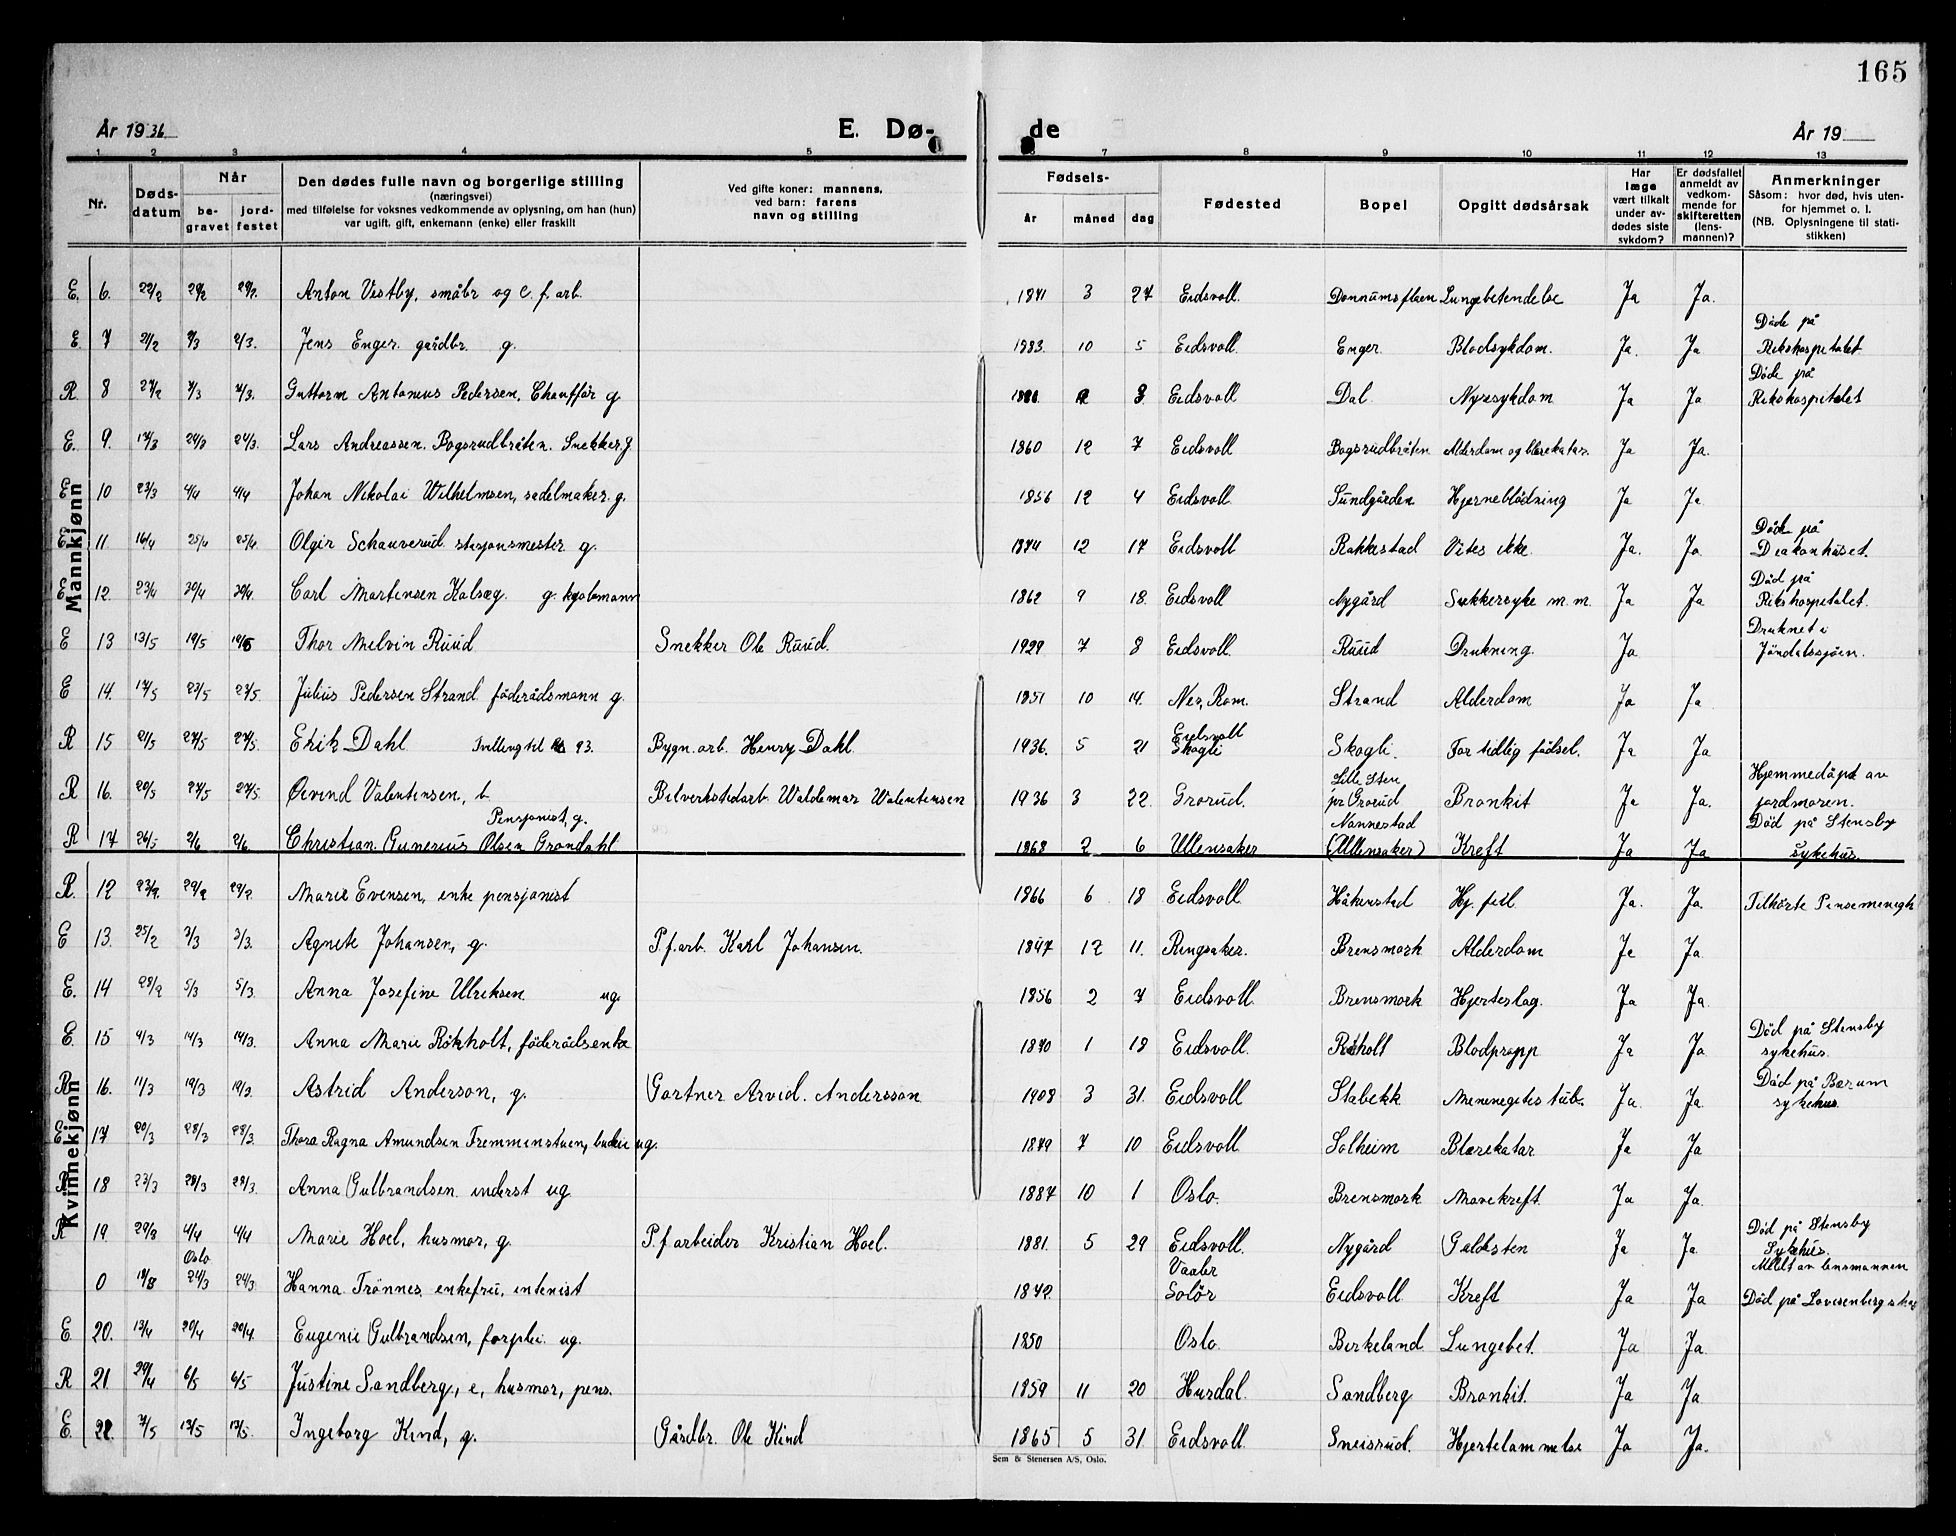 165
År 1936
E. Dø-
de
År 19
1 2 3 4 5 6 7 8 9 10 11 12 13
Nr.
Døds-
datum
Når
be-
gravet
jord-
festet
Den dødes fulle navn og borgerlige stilling
(næringsvei)
med tilføielse for voksnes vedkommende av oplysning, om han (hun)
var ugift, gift, enkemann (enke) eller fraskilt
Ved gifte koner: mannens,
ved barn: farens
navn og stilling
Fødsels-
år måned dag
Fødested
Bopel
Opgitt dødsårsak
Har
læge
vært tilkalt
under av-
dødes siste
sykdom?
Er dødsfallet
anmeldt av
vedkom-
mende for
skifteretten
(lens-
mannen)?
Anmerkninger
Såsom: hvor død, hvis uten-
for hjemmet o. l.
(NB. Oplysningene til stati-
stikken)
Mannkjønn
E. 6. 22/2 29/2 29/2. Anton Vestby, småbr og c. f. arb. 1871 3 27 Eidsvoll. Donnumsflaen Lungebetendelse Ja Ja.
E. 7 21/2 2/3 2/3. Jens Enger. gårdbr. g. 1883. 10 5 Eidsvoll Enger Blodsykdom. Ja. Ja Døde på Rikshospitalet
R 8 27/2 7/3 7/3. Guttorm Antonius Pedersen, Chauffør g. 8 Eidsvoll Dal Nyresykdom Ja Ja Døde på Rikshospitalet
E. 9. 17/3 24/3 24/3. Lars Andreassen. Bogsrudbråten. Snekker. g. 1860 12 7 Eidsvoll Bogsrudbråten Alderdom og blærekatar. Ja Ja.
E 10 23/3 4/4 4/4 Johan Nikolai Wilhelmsen, sadelmaker. g. 1856 12 4 Eidsvoll Sundgården Hjerneblødning Ja Ja
E 11 16/4 25/4 25/4 Olgir Schauverud. stasjonsmester g. 1874 12 17 Eidsvoll Rakkestad Vites ikke. Ja. Ja Døde på Diakonhuset.
E 12. 23/4 29/4 29/4. Carl Martinsen Kalsæg. g. kjøbmann 1862 9 18. Eidsvoll Nygård Sukkersyke m. m. Ja Ja Død på Rikshospitalet.
E 13 13/5 19/5 19/5 Thor Melvin Ruud Snekker Ole Ruud. 1929 7 8 Eidsvoll. Ruud Drukning. Ja Druknet i Jøndalssjøen.
E 14. 17/5 23/5 23/5. Julius Pedersen Strand føderådsmann g. 1851 10 14. Nes, Rom. Strand Alderdom Ja Ja
R 15 21/5 27/5 27/5. Erik Dahl Tvilling til 93. Bygn. arb. Henry Dahl 1936. 5 21 Eidsvoll Skogli Skogli. For tidlig fødsel. Ja Ja
R 16. 20/5 27/5 27/5. Øivind Valentinsen, b. Bilverkstedarb. Waldemar Valentinsen 1936 3 22. Grorud. Lille Sten pr Grorud Bronkit Ja Ja. Hjemmedåpt av jordmoren.
R 17 26/5 2/6 2/6 Christian Gunerius Olsen Grøndahl Pensjonist, g. 1868 2 6 Ullensaker Nannestad (Ullensaker) Kreft Ja Ja Død på Stensby sykehus.
Kvinnekjønn
R. 12 23/2. 29/2 29/2. Marie Evensen, enke pensjonist 1866 6 18 Eidsvoll. Håkenstad Hj. feil Ja. Ja. Tilhørte Pinsemenigh
E 13. 25/2 3/3 3/3. Agnete Johansen, g. P. f. arb. Karl Johansen. 1847 12 11. Ringsaker. Brensmork Alderdom Ja Ja.
E. 14 28/2 5/3 5/3. Anna Josefine Ulriksen ug. 1856 2 7 Eidsvoll. Brensmork Hjerteslag. Ja Ja.
E. 15 4/3 14/3 14/3. Anna Marie Råkholt, føderådsenke 1870 1 18 Eidsvoll. Råholt Blodpropp Ja Ja Død på Stensby sykehus.
R 16. 11/3 19/3 19/3. Astrid Anderson, g. Gartner Arvid. Andersson 1908 3 31. Eidsvoll Stabekk Menenegites tub. Ja. Ja. Død på Bærum sykehus
E 17 20/3 28/3 28/3. Thora Ragna Amundsen Fremminstuen, budeie ug. 1879 7 10 Eidsvoll Solheim Blærekatar Ja Ja
R 18 23/3 28/3 28/3. Anna Gulbrandsen inderst ug 1887 10 1 Oslo. Brensmork Mavekreft. Ja Ja.
R 19 29/3 4/4 4/4 Marie Hoel, husmor, g. P. f arbeider Kristian Hoel. 1881. 5 29 Eidsvoll. Nygård Galdesten Ja Ja Død på Stensby Sykehus.
0 18/3 Oslo 24/3 24/3 Hanna Trønnes, enkefru, intenist 1842. Vaaler Solør Eidsvoll Kreft Ja Ja Meldt av lensmannen Død på Lovisenberg
E. 20. 13/4 20/4 20/4. Eugenie Gulbrandsen, forplei ug. 1850 Oslo. Birkeland Lungebet. Ja Ja
R 21. 29/4 6/5 6/5 Justine Sandberg, e, husmor, pens. 1859 11 20 Hurdal. Sandberg Bronkit. Ja Ja
E. 22. 7/5 13/5 13/5. Ingeborg Kind, g. Gårdbr. Ole Kind 1865 5 31 Eidsvoll. Sneisrud. Hjertelammelse Ja Ja.
Sem & Stenersen A/S, Oslo.